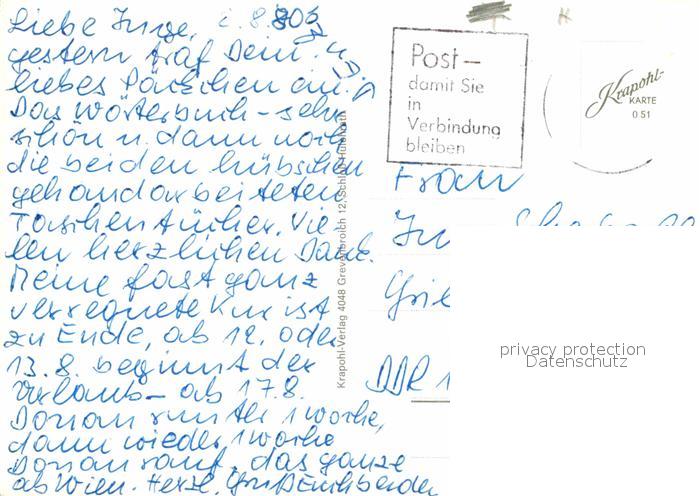 Liebe Inge, 1.8.80
gestern traf Dein
liebes Päckchen ein.
Das Wörterbuch – sehr
schön u. dann noch
die beiden hübschen
gehandarbeiteten
Taschentücher. Vie-
len herzlichen Dank.
Meine fast ganz
verregnete Kur ist
zu Ende, ab 12. oder
13.8. beginnt der
Urlaub – ab 17.8.
Donau runter 1 Woche,
dann wieder 1 Woche
Donau rauf, das ganze
ab Wien. Herzl. Gruß Euch beiden
Krapohl-Verlag 4048 Grevenbroich 12, Schloß Hülchrath
Post –
damit Sie
in
Verbindung
bleiben
Krapohl-
KARTE
0 51
Frau
DDR 1
privacy protection
Datenschutz